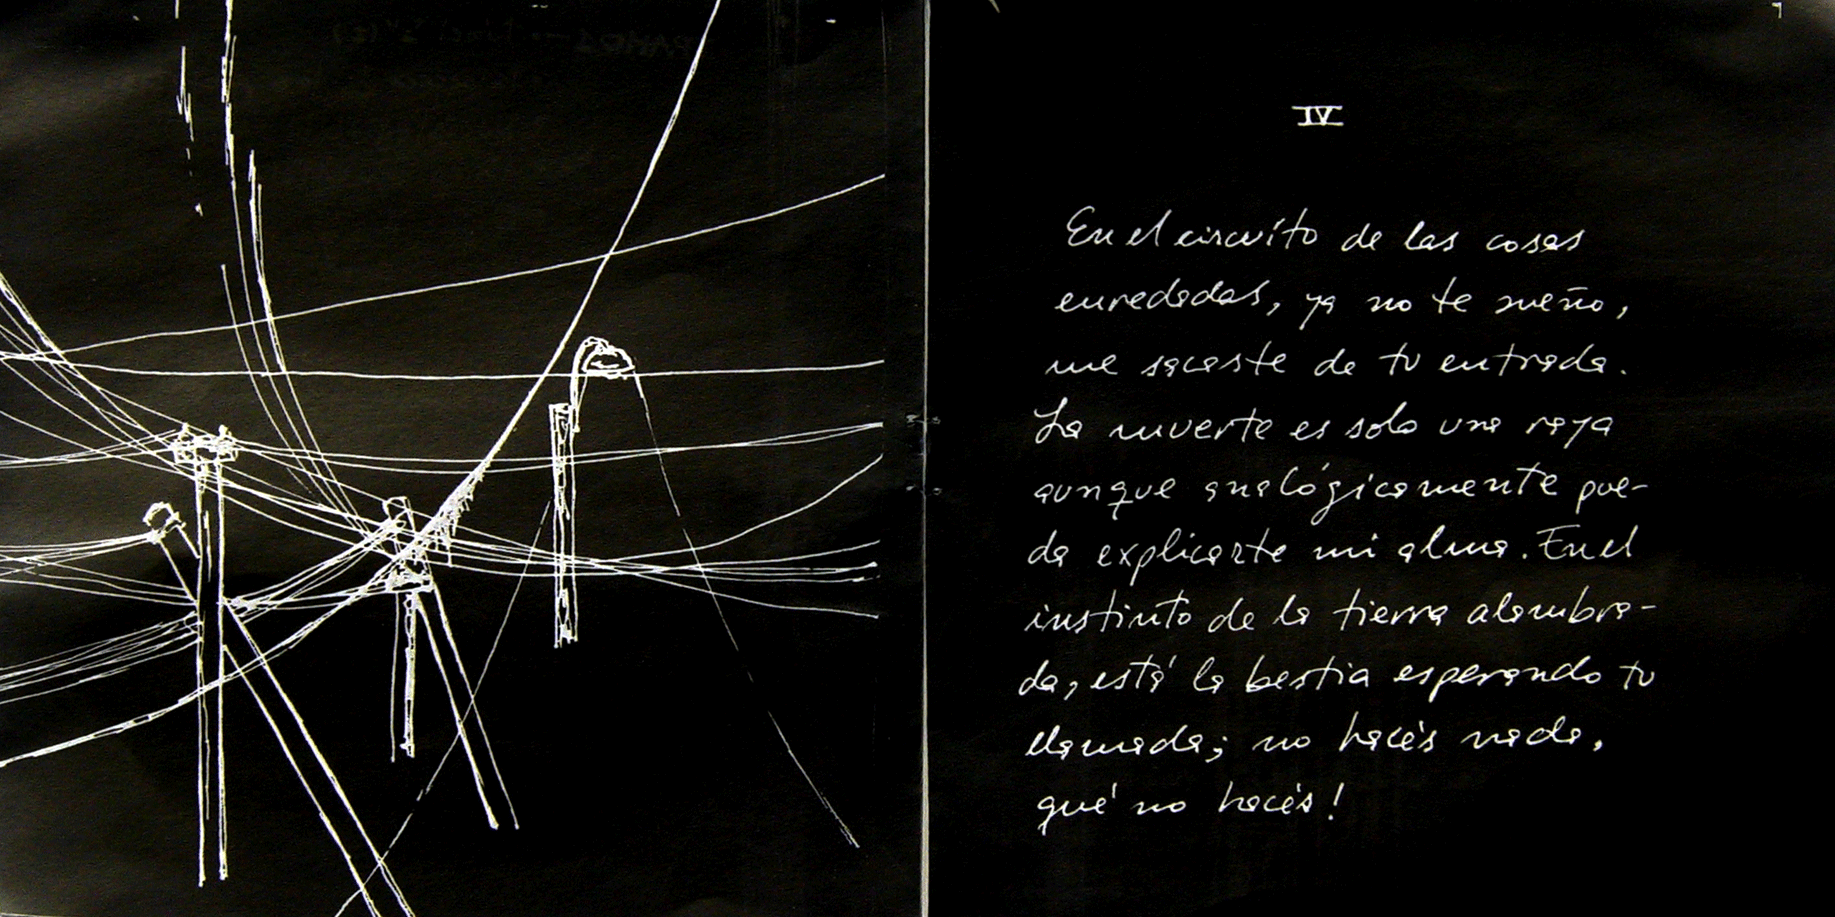 IV
En el circuíto de las cosas
enrededas, ya no te sueño,
me sacaste de tu entrada.
La muerte es solo una raya
aunque analógicamente pue-
da explicarte mi alma. En el
instinto de la tierra alambra-
da, está la bestia esperando tu
llamada; no hacés nada,
qué no hacés!